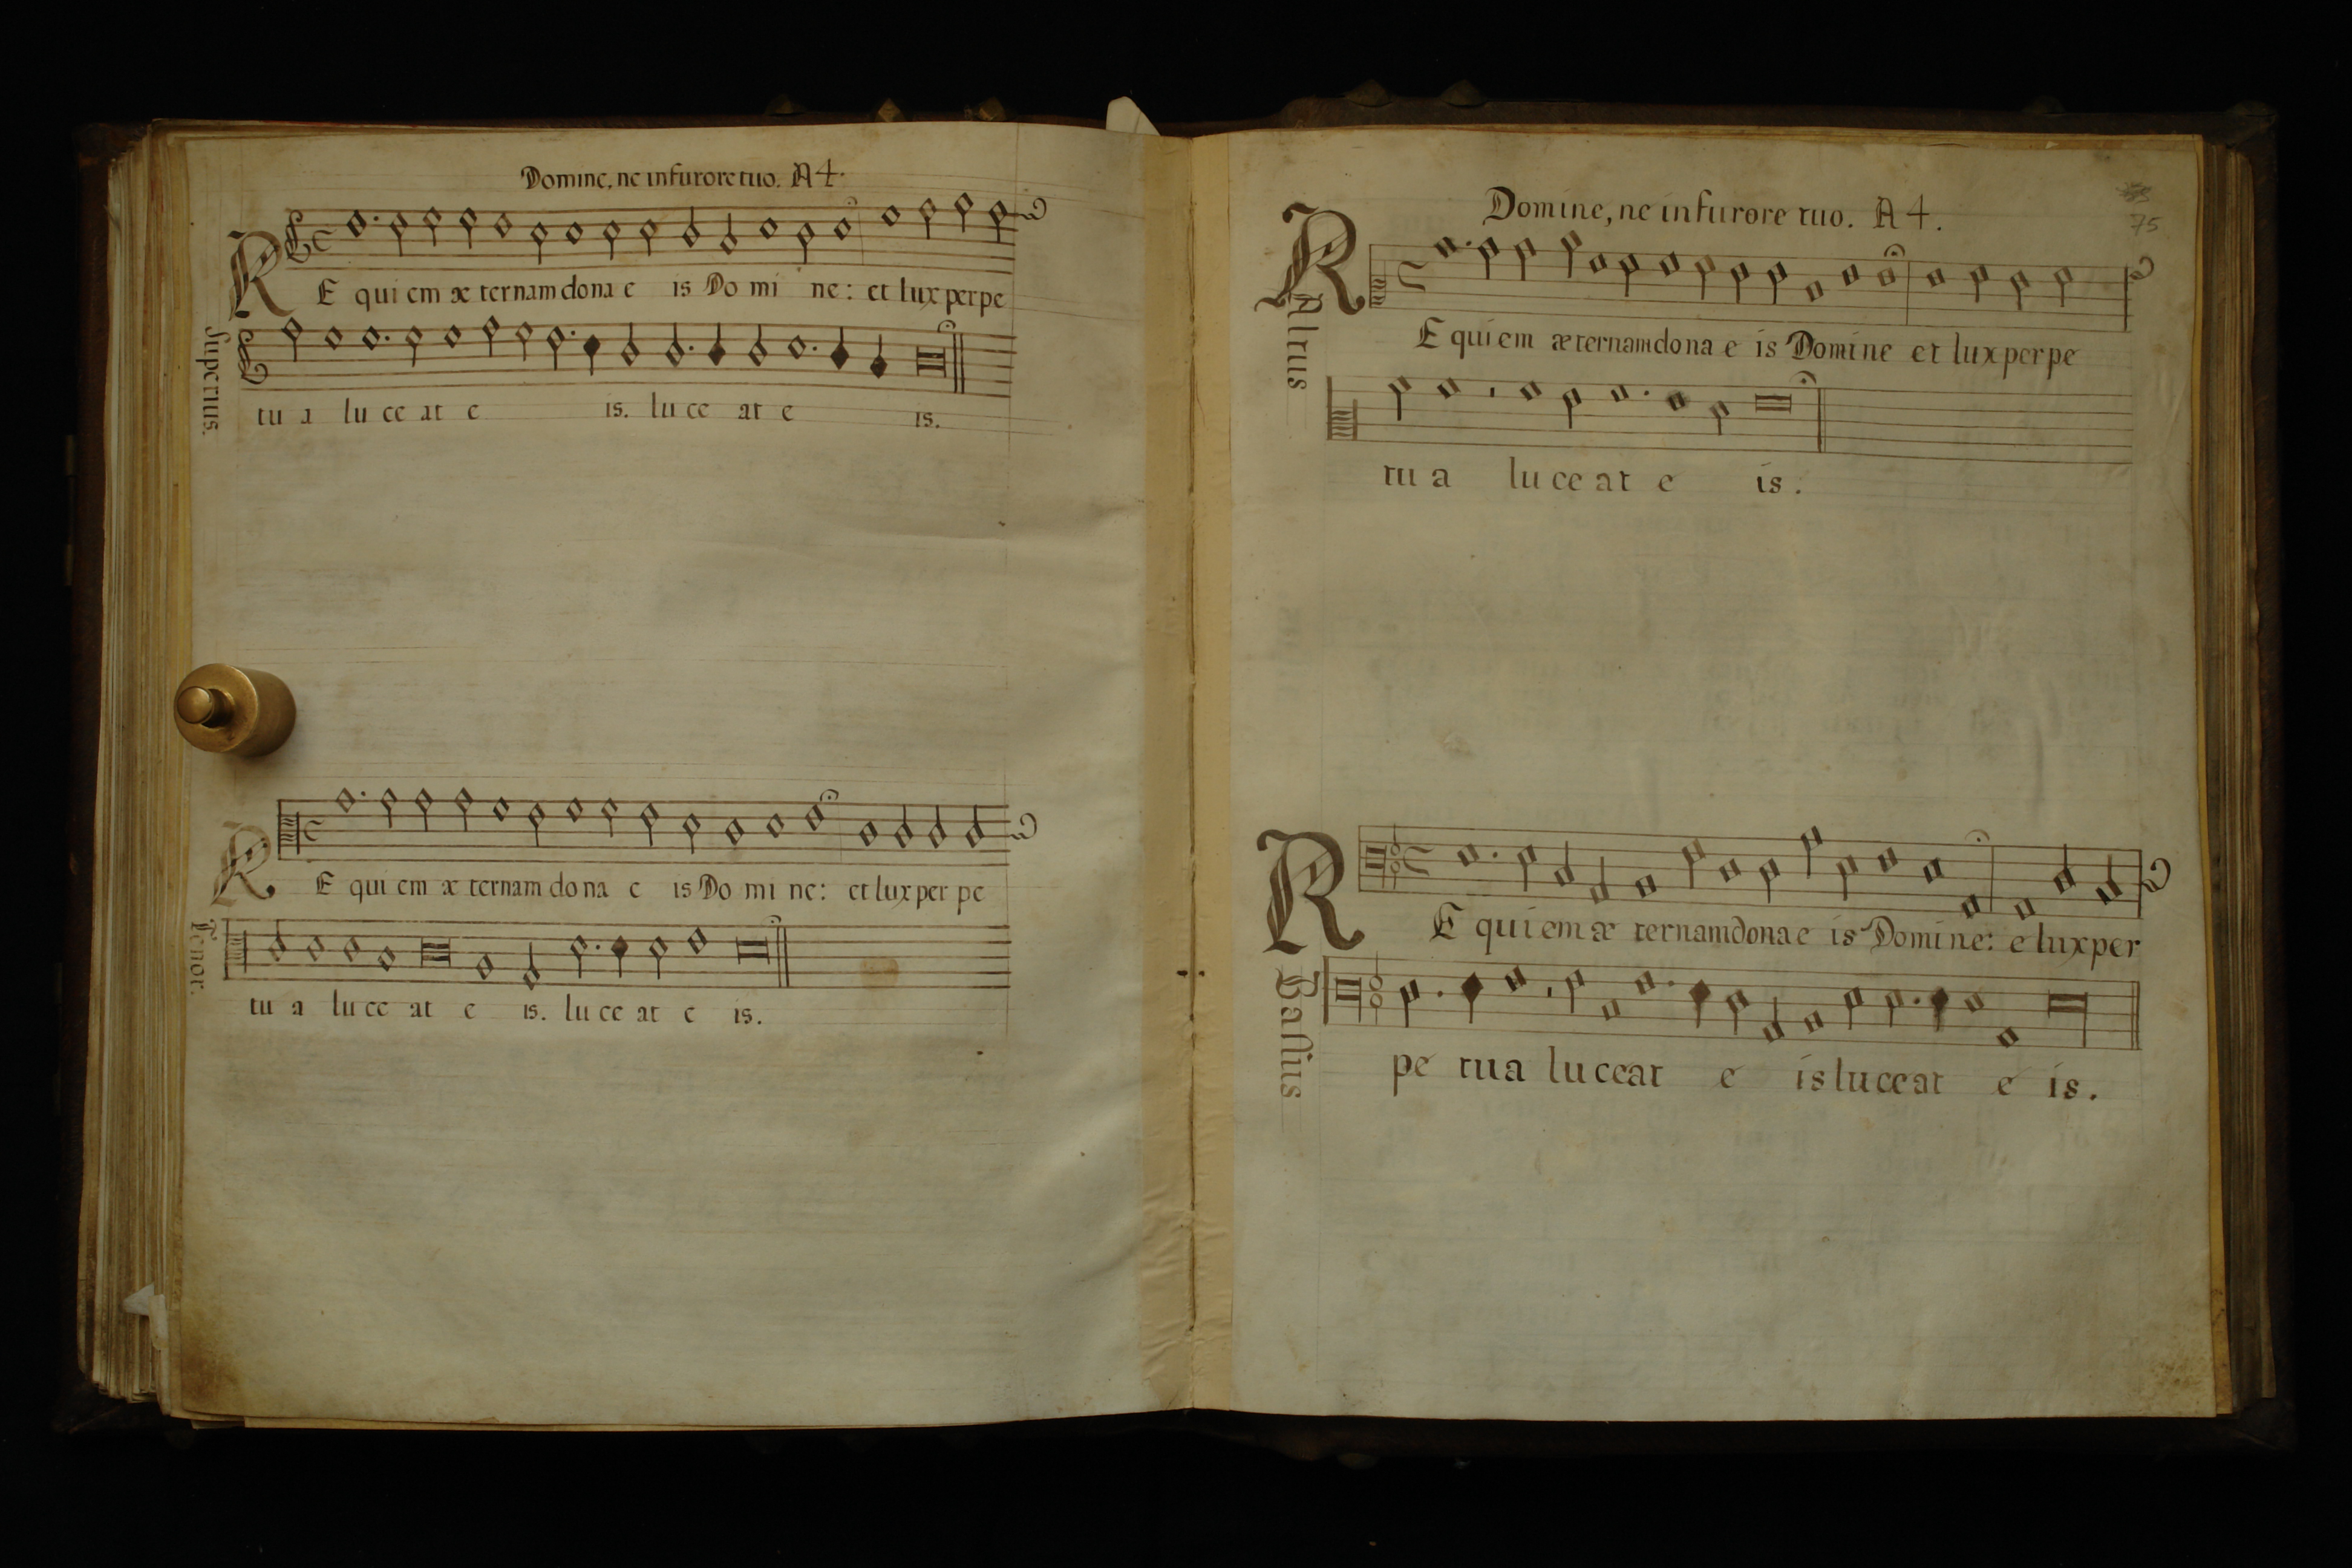 Domine, ne in furore tuo. A 4.
RE qui em æ ternam dona e is Do mi ne: et lux per pe
Superius.
tu a lu ce at e is. lu ce at e is.
RE qui em æ ternam do na e is Do mi ne: et lux per pe
Tenor.
tu a lu ce at e is. lu ce at e is.
75
Domine, ne in furore tuo. A 4.
RE qui em æ ternam do na e is Domine et lux per pe
Altus
tu a lu ce at e is.
RE qui em æ ternam dona e is Domine: e lux per
Bassus
pe tu a lu ce at e is lu ce at e is.